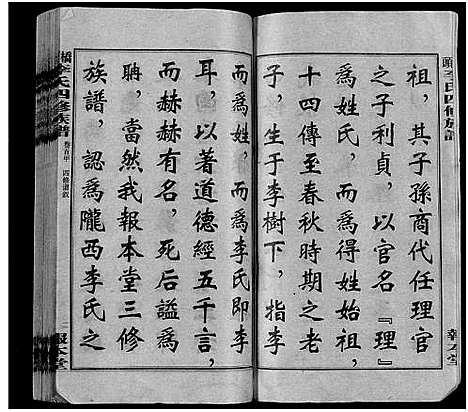 祖，其子孫商代任理官
之子利貞，以官名『理』
爲姓氏，而爲得姓始祖，
十四傳至春秋時期之老
子，生于李樹下，指李
而爲姓，而爲李氏即李
耳，以著道德經五千言，
而赫赫有名，死后謚爲
聃，當然我報本堂三修
族譜，認爲隴西李氏之
橋李氏四修族譜
卷首甲
報本堂
李氏四修族譜
報本堂